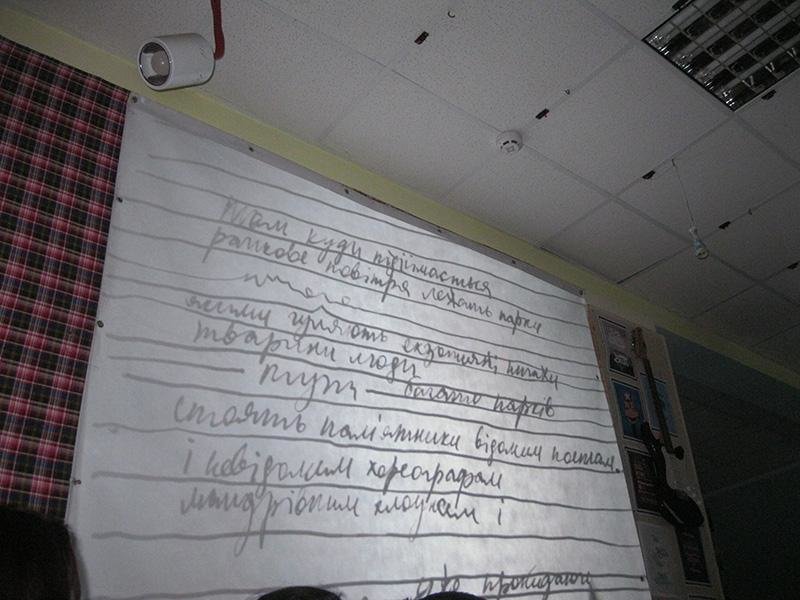 Там куди підіймається
ранкове повітря лежать парки
якими гуляють екзотичні птахи
тварини люди
тут багато парків
стоять пам'ятники відомим поетам
і невідомим хореографам
мандрівним клоунам і
прокидаюч